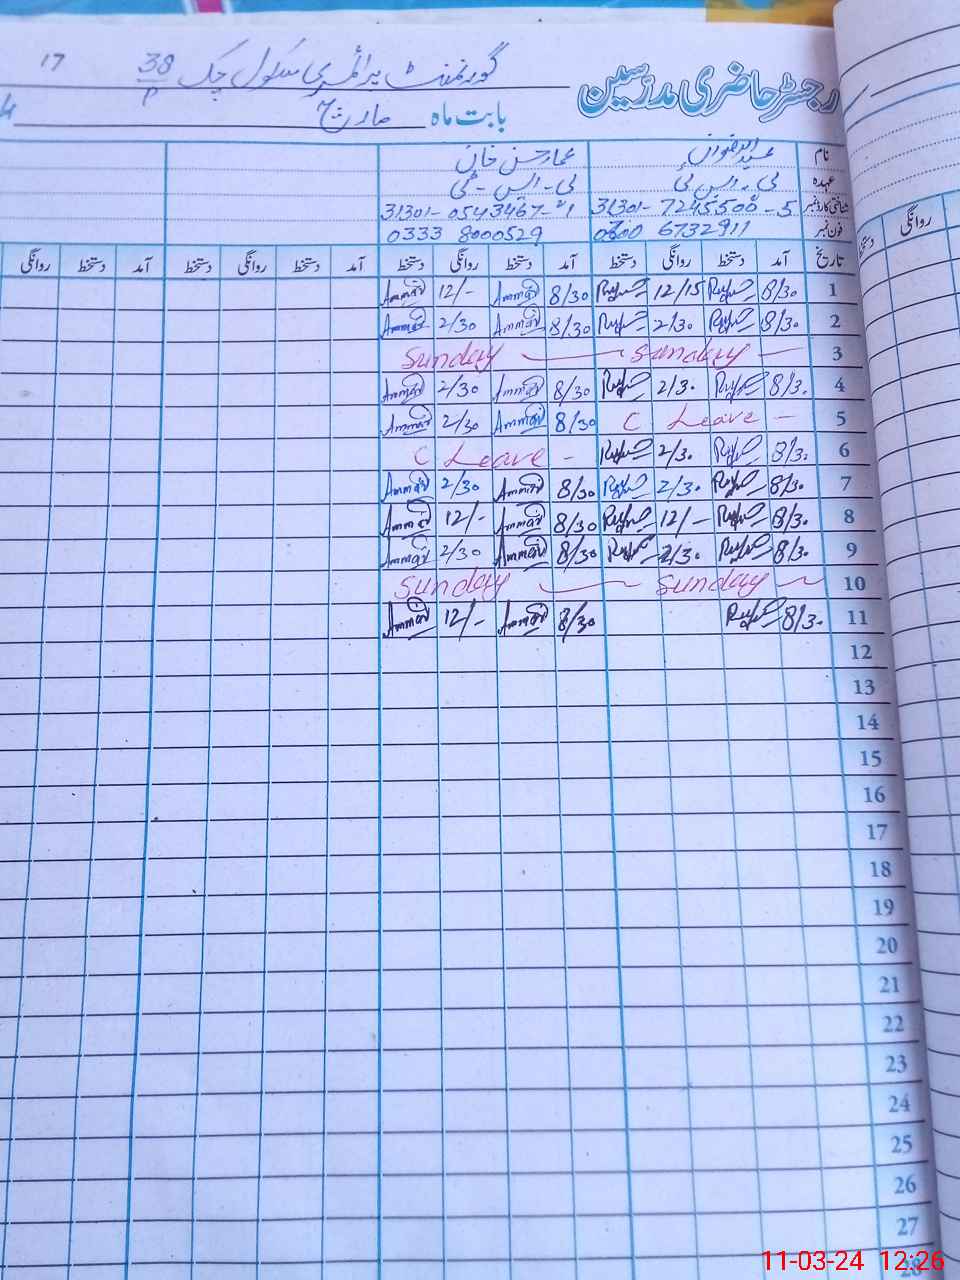 رجسٹر حاضری مدرسین گورنمنٹ پرائمری سکول چک 38/P 17
بابت ماہ مارچ
نام عبدالرضوان عمار حسن خان
عہدہ پی۔ایس۔ٹی پی۔ایس۔ٹی
شناختی کارڈ نمبر 31301-7245500-5 31301-0543467-1
فون نمبر 6732911 0333 8000529
تاریخ آمد دستخط روانگی دستخط آمد دستخط روانگی دستخط آمد دستخط روانگی دستخط آمد دستخط روانگی
1 8/30 12/15 8/30 Ammar 12/- Ammar
2 8/30 2/30 8/30 Ammar 2/30 Ammar
3 Sunday Sunday
4 8/30 2/30 8/30 Ammar 2/30 Ammar
5 C Leave 8/30 Ammar 2/30 Ammar
6 8/30 2/30 C Leave
7 8/30 2/30 8/30 Ammar 2/30 Ammar
8 8/30 12/- 8/30 Ammar 12/- Ammar
9 8/30 2/30 8/30 Ammar 2/30 Ammar
10 Sunday Sunday
11 8/30 8/30 Ammar 12/- Ammar
12
13
14
15
16
17
18
19
20
21
22
23
24
25
26
27
28
روانگی دستخط
11-03-24 12:26